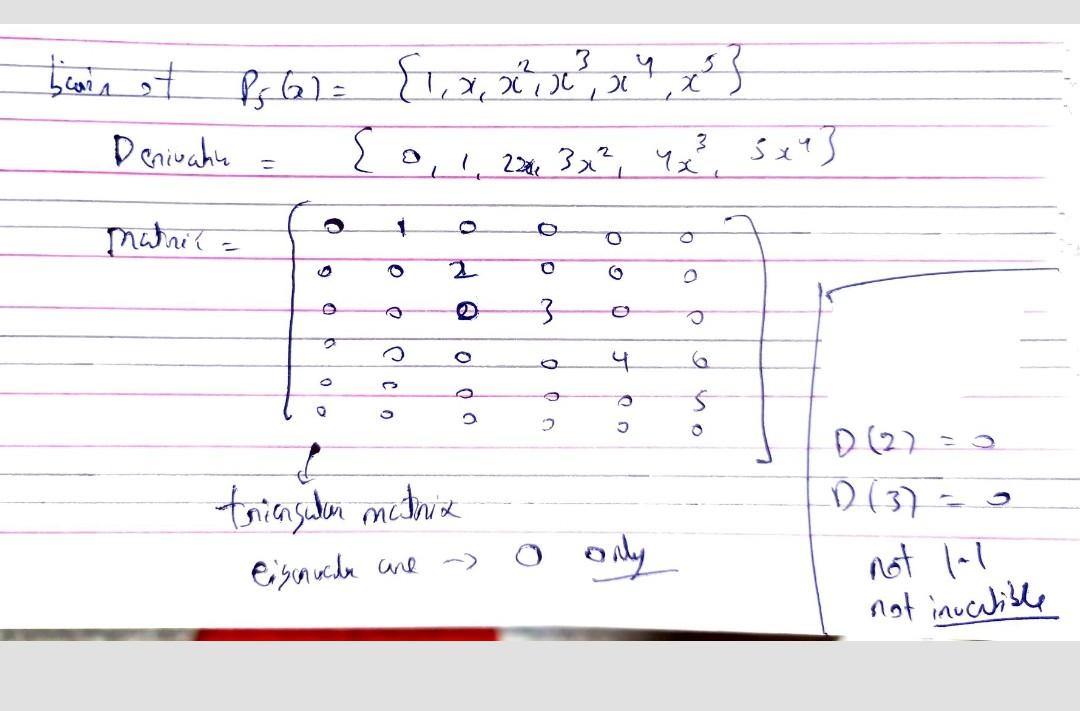 basis of P₅(x) = {1, x, x², x³, x⁴, x⁵}
Derivative = { 0, 1, 2x, 3x², 4x³, 5x⁴}
matrix =
0 1 0 0 0 0
0 0 2 0 0 0
0 0 0 3 0 0
0 0 0 0 4 0
0 0 0 0 0 5
0 0 0 0 0 0
triangular matrix
eigenvalue are → 0 only
D(2) = 0
D(3) = 0
not 1-1
not invertible